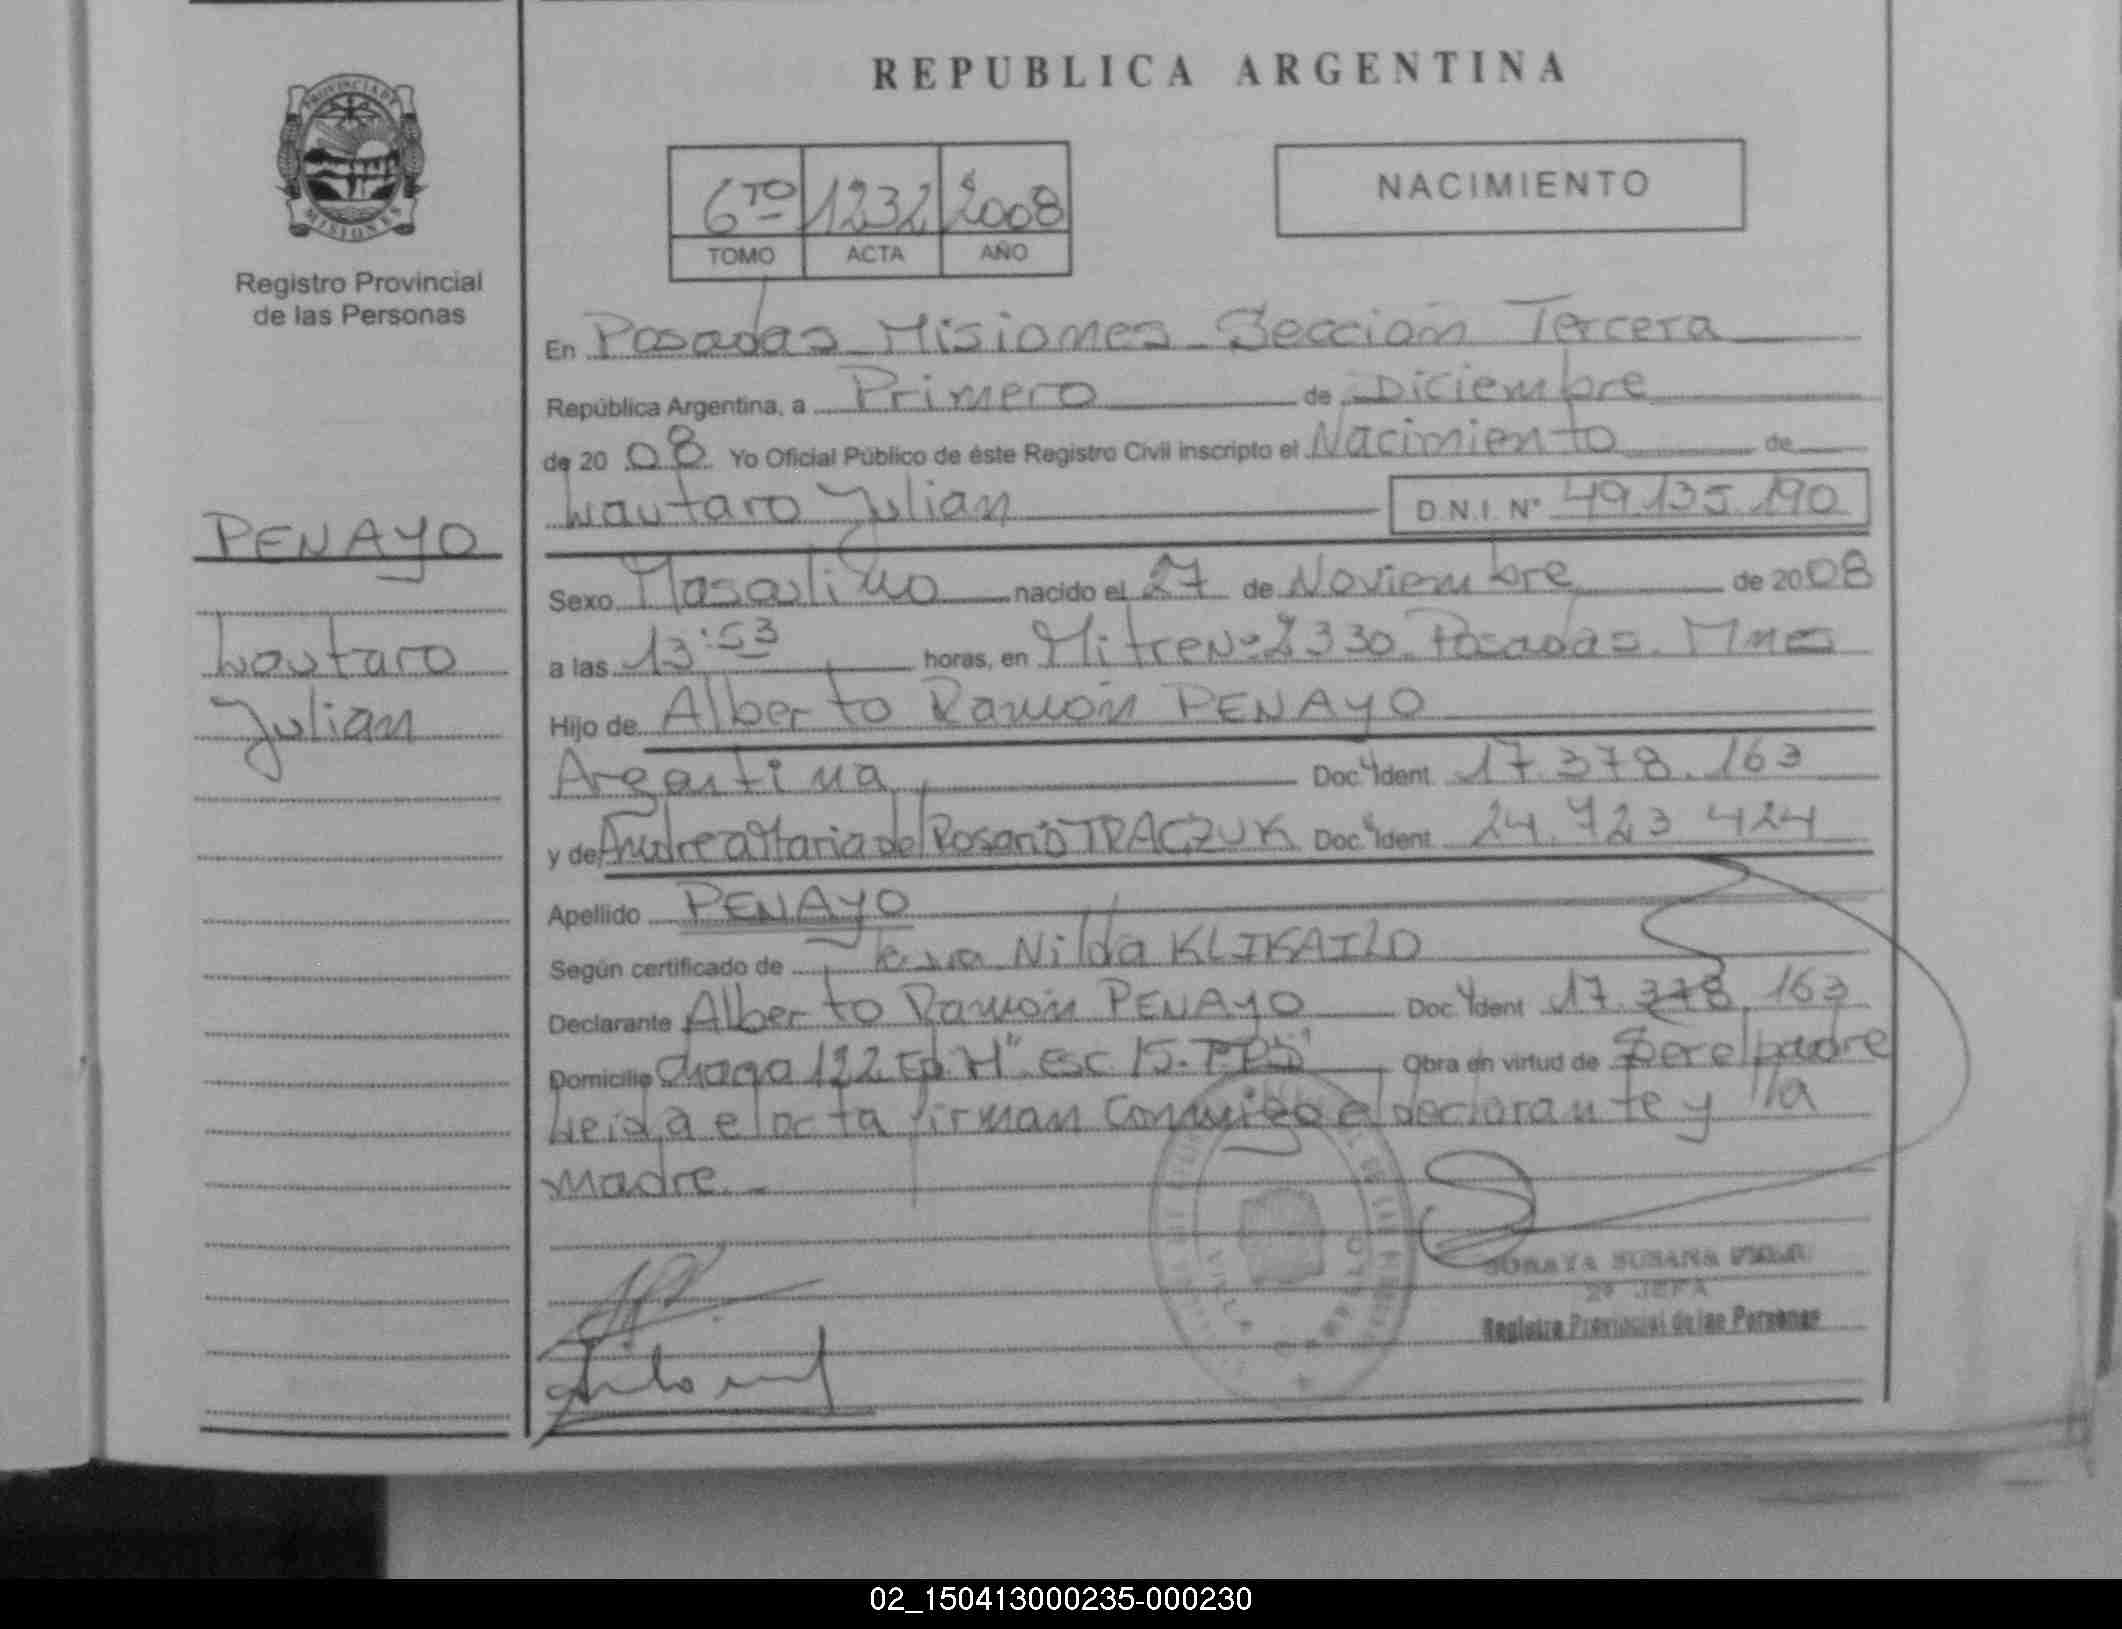 REPUBLICA ARGENTINA
PROVINCIA DE
MISIONES
Registro Provincial
de las Personas
6TO 1232 2008
TOMO ACTA AÑO
NACIMIENTO
En Posadas Misiones Sección Tercera
República Argentina, a Primero de Diciembre
de 2008 Yo Oficial Público de éste Registro Civil inscripto el Nacimiento de
Lautaro Julian D.N.I. Nº 49.135.190
PENAYO
Lautaro
Julian
Sexo Masculino nacido el 27 de Noviembre de 2008
a las 13:53 horas, en Mitre Nº 2330 Posadas. Mnes
Hijo de Alberto Ramón PENAYO
Argentina Doc. Ident. 17.378.163
y de Andrea Maria del Rosario TRACZUK Doc. Ident. 24.723.424
Apellido PENAYO
Según certificado de Nilda
Declarante Alberto Ramón PENAYO Doc. Ident 17.378.163
Domicilio 122 "H" Esc. 15. Obra en virtud de Ser el padre
Leida el acta firman Conmigo el declarante y la
madre.-
SORAYA SUSANA
2º JEFA
Registro Provincial de las Personas
02_150413000235-000230